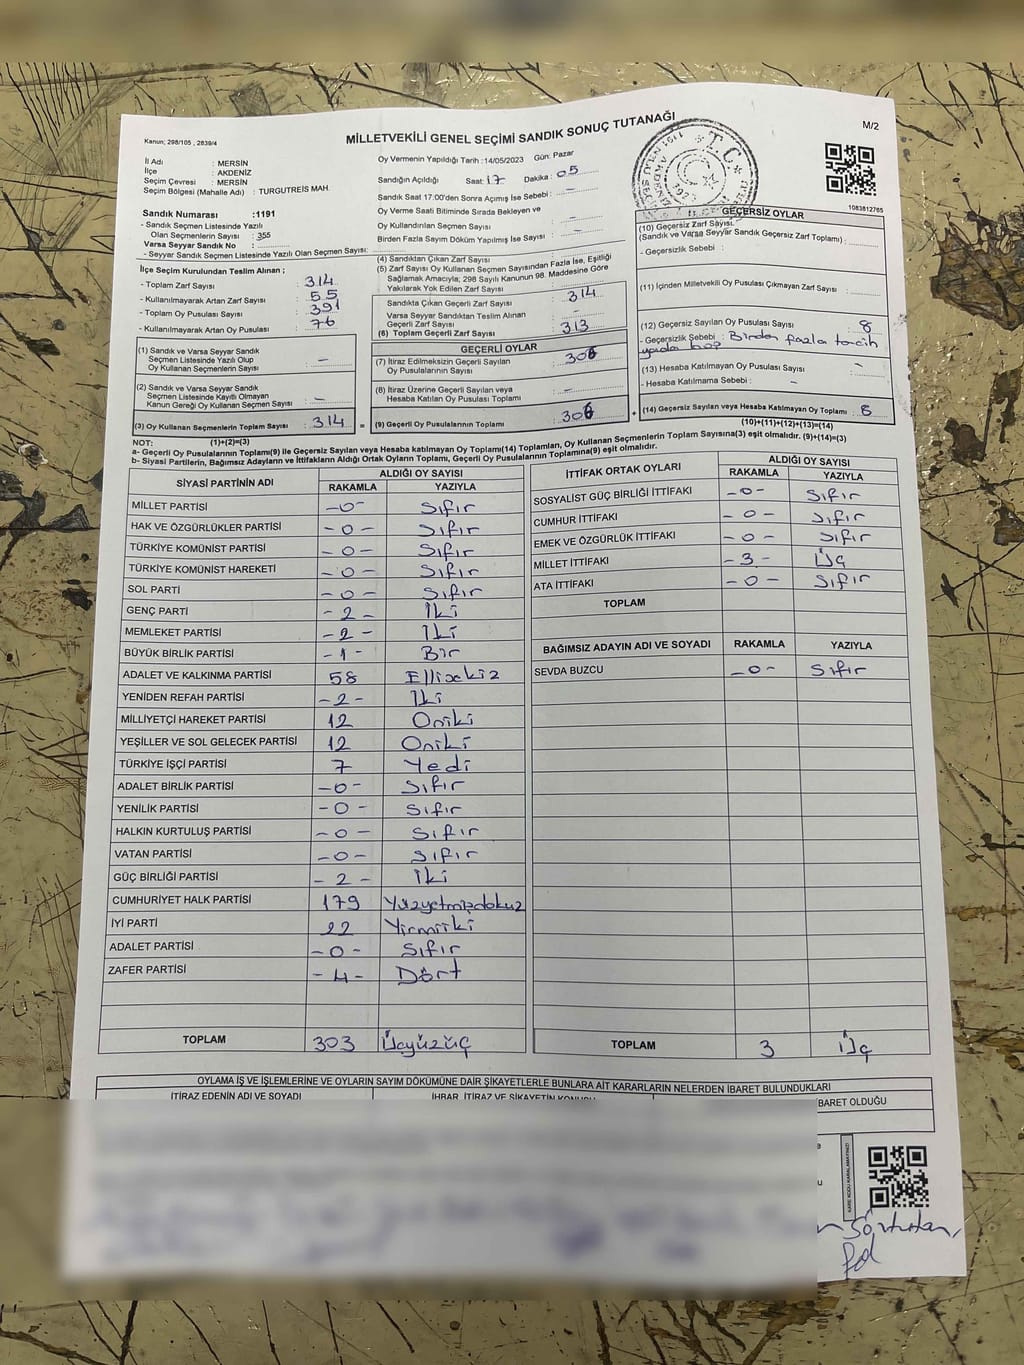 Kanun; 298/105 , 2839/4
MİLLETVEKİLİ GENEL SEÇİMİ SANDIK SONUÇ TUTANAĞI
M/2
İl Adı : MERSİN
İlçe : AKDENİZ
Seçim Çevresi : MERSİN
Seçim Bölgesi (Mahalle Adı) : TURGUTREİS MAH.
Oy Vermenin Yapıldığı Tarih :14/05/2023 Gün: Pazar
Sandığın Açıldığı Saat: 17 Dakika : 05
Sandık Saat 17:00'den Sonra Açılmış İse Sebebi : –
Oy Verme Saati Bitiminde Sırada Bekleyen ve
Oy Kullandırılan Seçmen Sayısı : –
Birden Fazla Sayım Döküm Yapılmış İse Sayısı : –
T.C.
1083812765
Sandık Numarası :1191
- Sandık Seçmen Listesinde Yazılı
Olan Seçmenlerin Sayısı : 355
Varsa Seyyar Sandık No :
- Seyyar Sandık Seçmen Listesinde Yazılı Olan Seçmen Sayısı:
İlçe Seçim Kurulundan Teslim Alınan ;
- Toplam Zarf Sayısı : 314
- Kullanılmayarak Artan Zarf Sayısı : 55
- Toplam Oy Pusulası Sayısı : 391
- Kullanılmayarak Artan Oy Pusulası : 76
(1) Sandık ve Varsa Seyyar Sandık
Seçmen Listesinde Yazılı Olup
Oy Kullanan Seçmen Sayısı : –
(2) Sandık ve Varsa Seyyar Sandık
Seçmen Listesinde Kayıtlı Olmayan
Kanun Gereği Oy Kullanan Seçmen Sayısı : –
(3) Oy Kullanan Seçmenlerin Toplam Sayısı : 314
(1)+(2)=(3)
(4) Sandıktan Çıkan Zarf Sayısı :
(5) Zarf Sayısı Oy Kullanan Seçmen Sayısından Fazla İse, Eşitliği
Sağlamak Amacıyla; 298 Sayılı Kanunun 98. Maddesine Göre
Yakılarak Yok Edilen Zarf Sayısı :
Sandıkta Çıkan Geçerli Zarf Sayısı : 314
Varsa Seyyar Sandıktan Teslim Alınan
Geçerli Zarf Sayısı :
(6) Toplam Geçerli Zarf Sayısı : 313
GEÇERLİ OYLAR
(7) İtiraz Edilmeksizin Geçerli Sayılan
Oy Pusulasının Sayısı : 306
(8) İtiraz Üzerine Geçerli Sayılan veya
Hesaba Katılan Oy Pusulası Toplamı : –
= (9) Geçerli Oy Pusulalarının Toplamı : 306
GEÇERSİZ OYLAR
(10) Geçersiz Zarf Sayısı.
(Sandık ve Varsa Seyyar Sandık Geçersiz Zarf Toplamı) :
- Geçersizlik Sebebi :
(11) İçinden Milletvekili Oy Pusulası Çıkmayan Zarf Sayısı :
(12) Geçersiz Sayılan Oy Pusulası Sayısı : 8
- Geçersizlik Sebebi : Birden fazla tercih
(13) Hesaba Katılmayan Oy Pusulası Sayısı : –
- Hesaba Katılmama Sebebi : –
+ (14) Geçersiz Sayılan veya Hesaba Katılmayan Oy Toplamı : 8
(10)+(11)+(12)+(13)=(14)
NOT:
a- Geçerli Oy Pusulalarının Toplamı(9) ile Geçersiz Sayılan veya Hesaba katılmayan Oy Toplamı(14) Toplamları, Oy Kullanan Seçmenlerin Toplam Sayısına(3) eşit olmalıdır. (9)+(14)=(3)
b- Siyasi Partilerin, Bağımsız Adayların ve İttifakların Aldığı Ortak Oyların Toplamı, Geçerli Oy Pusulalarının Toplamına(9) eşit olmalıdır.
SİYASİ PARTİNİN ADI ALDIĞI OY SAYISI
RAKAMLA YAZIYLA
MİLLET PARTİSİ -0- Sıfır
HAK VE ÖZGÜRLÜKLER PARTİSİ -0- Sıfır
TÜRKİYE KOMÜNİST PARTİSİ -0- Sıfır
TÜRKİYE KOMÜNİST HAREKETİ -0- Sıfır
SOL PARTİ -0- Sıfır
GENÇ PARTİ -2- İki
MEMLEKET PARTİSİ -2- İki
BÜYÜK BİRLİK PARTİSİ -1- Bir
ADALET VE KALKINMA PARTİSİ 58 Ellisekiz
YENİDEN REFAH PARTİSİ -2- İki
MİLLİYETÇİ HAREKET PARTİSİ 12 Oniki
YEŞİLLER VE SOL GELECEK PARTİSİ 12 Oniki
TÜRKİYE İŞÇİ PARTİSİ 7 Yedi
ADALET BİRLİK PARTİSİ -0- Sıfır
YENİLİK PARTİSİ -0- Sıfır
HALKIN KURTULUŞ PARTİSİ -0- Sıfır
VATAN PARTİSİ -0- Sıfır
GÜÇ BİRLİĞİ PARTİSİ -2- İki
CUMHURİYET HALK PARTİSİ 179 Yüzyetmişdokuz
İYİ PARTİ 22 Yirmiiki
ADALET PARTİSİ -0- Sıfır
ZAFER PARTİSİ -4- Dört
TOPLAM 303 Üçyüzüç
İTTİFAK ORTAK OYLARI ALDIĞI OY SAYISI
RAKAMLA YAZIYLA
SOSYALİST GÜÇ BİRLİĞİ İTTİFAKI -0- Sıfır
CUMHUR İTTİFAKI -0- Sıfır
EMEK VE ÖZGÜRLÜK İTTİFAKI -0- Sıfır
MİLLET İTTİFAKI -3- Üç
ATA İTTİFAKI -0- Sıfır
TOPLAM
BAĞIMSIZ ADAYIN ADI VE SOYADI RAKAMLA YAZIYLA
SEVDA BUZCU -0- Sıfır
TOPLAM 3 Üç
OYLAMA İŞ VE İŞLEMLERİNE VE OYLARIN SAYIM DÖKÜMÜNE DAİR ŞİKAYETLERLE BUNLARA AİT KARARLARIN NELERDEN İBARET BULUNDUKLARI
İTİRAZ EDENİN ADI VE SOYADI İHBAR, İTİRAZ VE ŞİKAYETİN KONUSU BARET OLDUĞU
KARE KODU KARALAMAYINIZ!